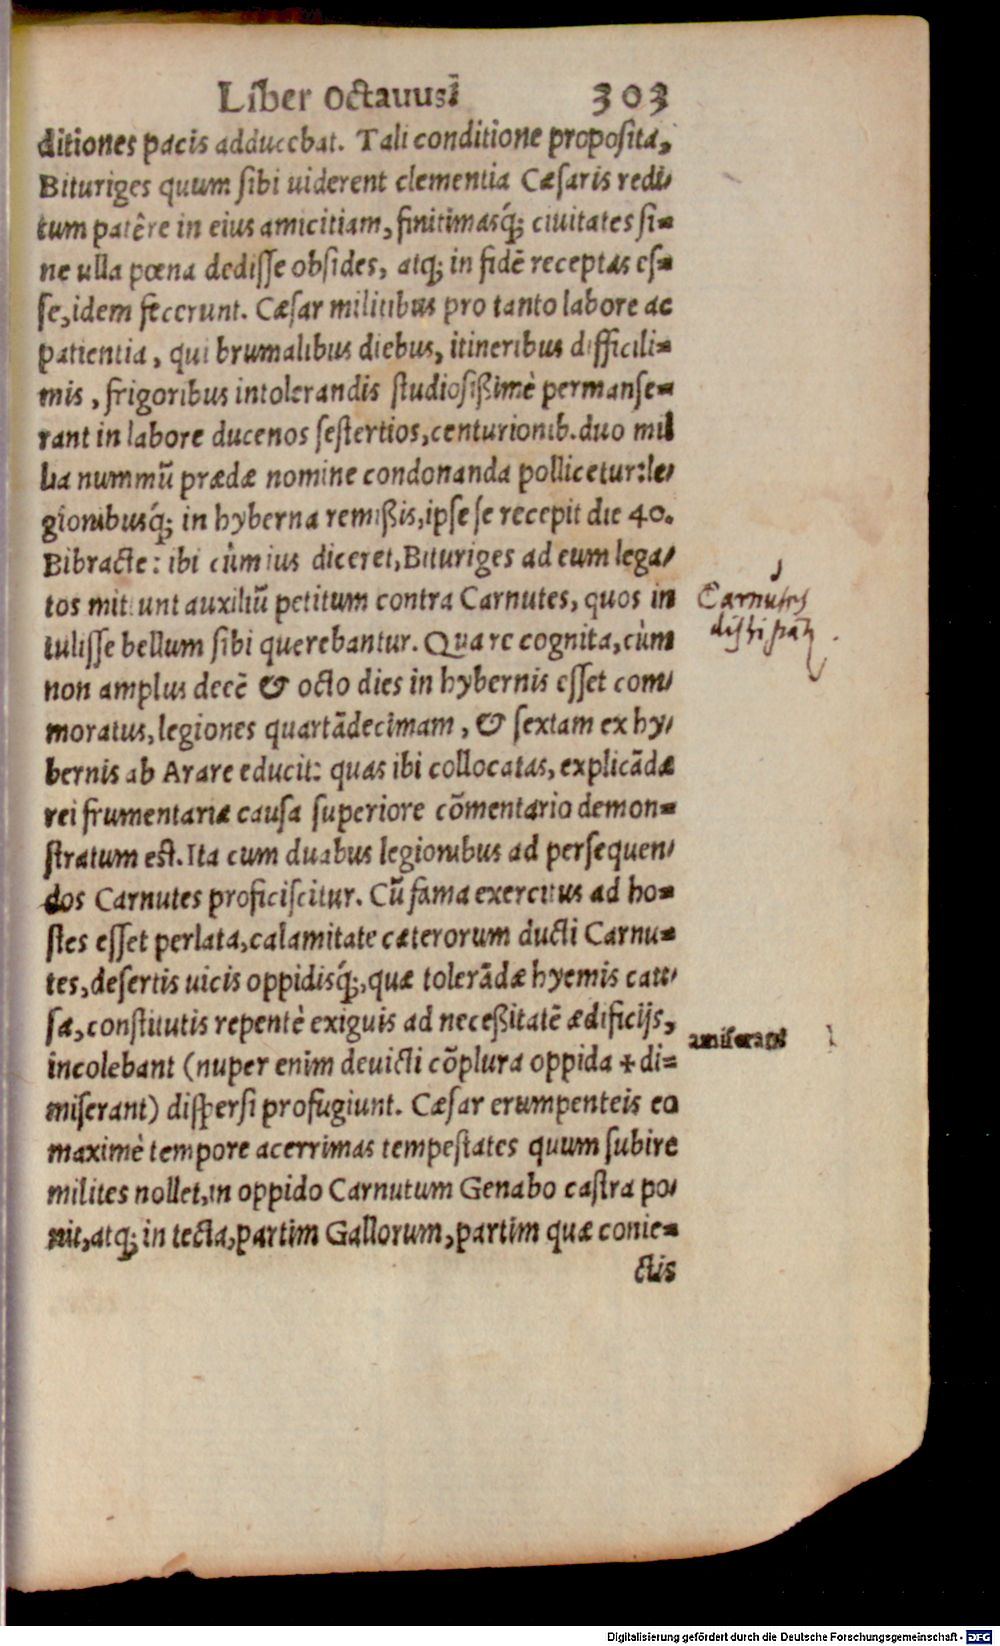 Liber octauus. 303
ditiones pacis adducebat. Tali conditione proposita,
Bituriges quum sibi uiderent clementia Cæsaris redi/
tum patêre in eius amicitiam, finitimasq́; ciuitates si=
ne ulla pœna dedisse obsides, atq; in fidẽ receptas es=
se, idem fecerunt. Cæsar militibus pro tanto labore ac
patientia, qui brumalibus diebus, itineribus difficili=
mis, frigoribus intolerandis studiosißimè permanse=
rant in labore ducenos sestertios, centurionib. duo mil
lia nummũ prædæ nomine condonanda pollicetur: le/
gionibusq́; in hyberna remißis, ipse se recepit die 40.
Bibracte: ibi cùm ius diceret, Bituriges ad eum lega/
tos mittunt auxiliũ petitum contra Carnutes, quos in
tulisse bellum sibi querebantur. Qua re cognita, cùm
non amplus decẽ & octo dies in hybernis esset com/
moratus, legiones quartãdecimam, & sextam ex hy/
bernis ab Arare educit: quas ibi collocatas, explicãdæ
rei frumentariæ causa superiore cõmentario demon=
stratum est. Ita cum duabus legionibus ad persequen/
dos Carnutes proficiscitur. Cũ fama exercitus ad ho=
stes esset perlata, calamitate cæterorum ducti Carnu=
tes, desertis uicis oppidisq́;, quæ tolerãdæ hyemis cau/
sa, constitutis repentè exiguis ad neceßitatẽ ædificijs,
incolebant (nuper enim deuicti cõplura oppida + di=
miserant) dispersi profugiunt. Cæsar erumpenteis eo
maximè tempore acerrimas tempestates quum subire
milites nollet, in oppido Carnutum Genabo castra po/
nit, atq; in tecta, partim Gallorum, partim quæ conie=
ctis
Carnutes
amiserant
Digitalisierung gefördert durch die Deutsche Forschungsgemeinschaft - DFG